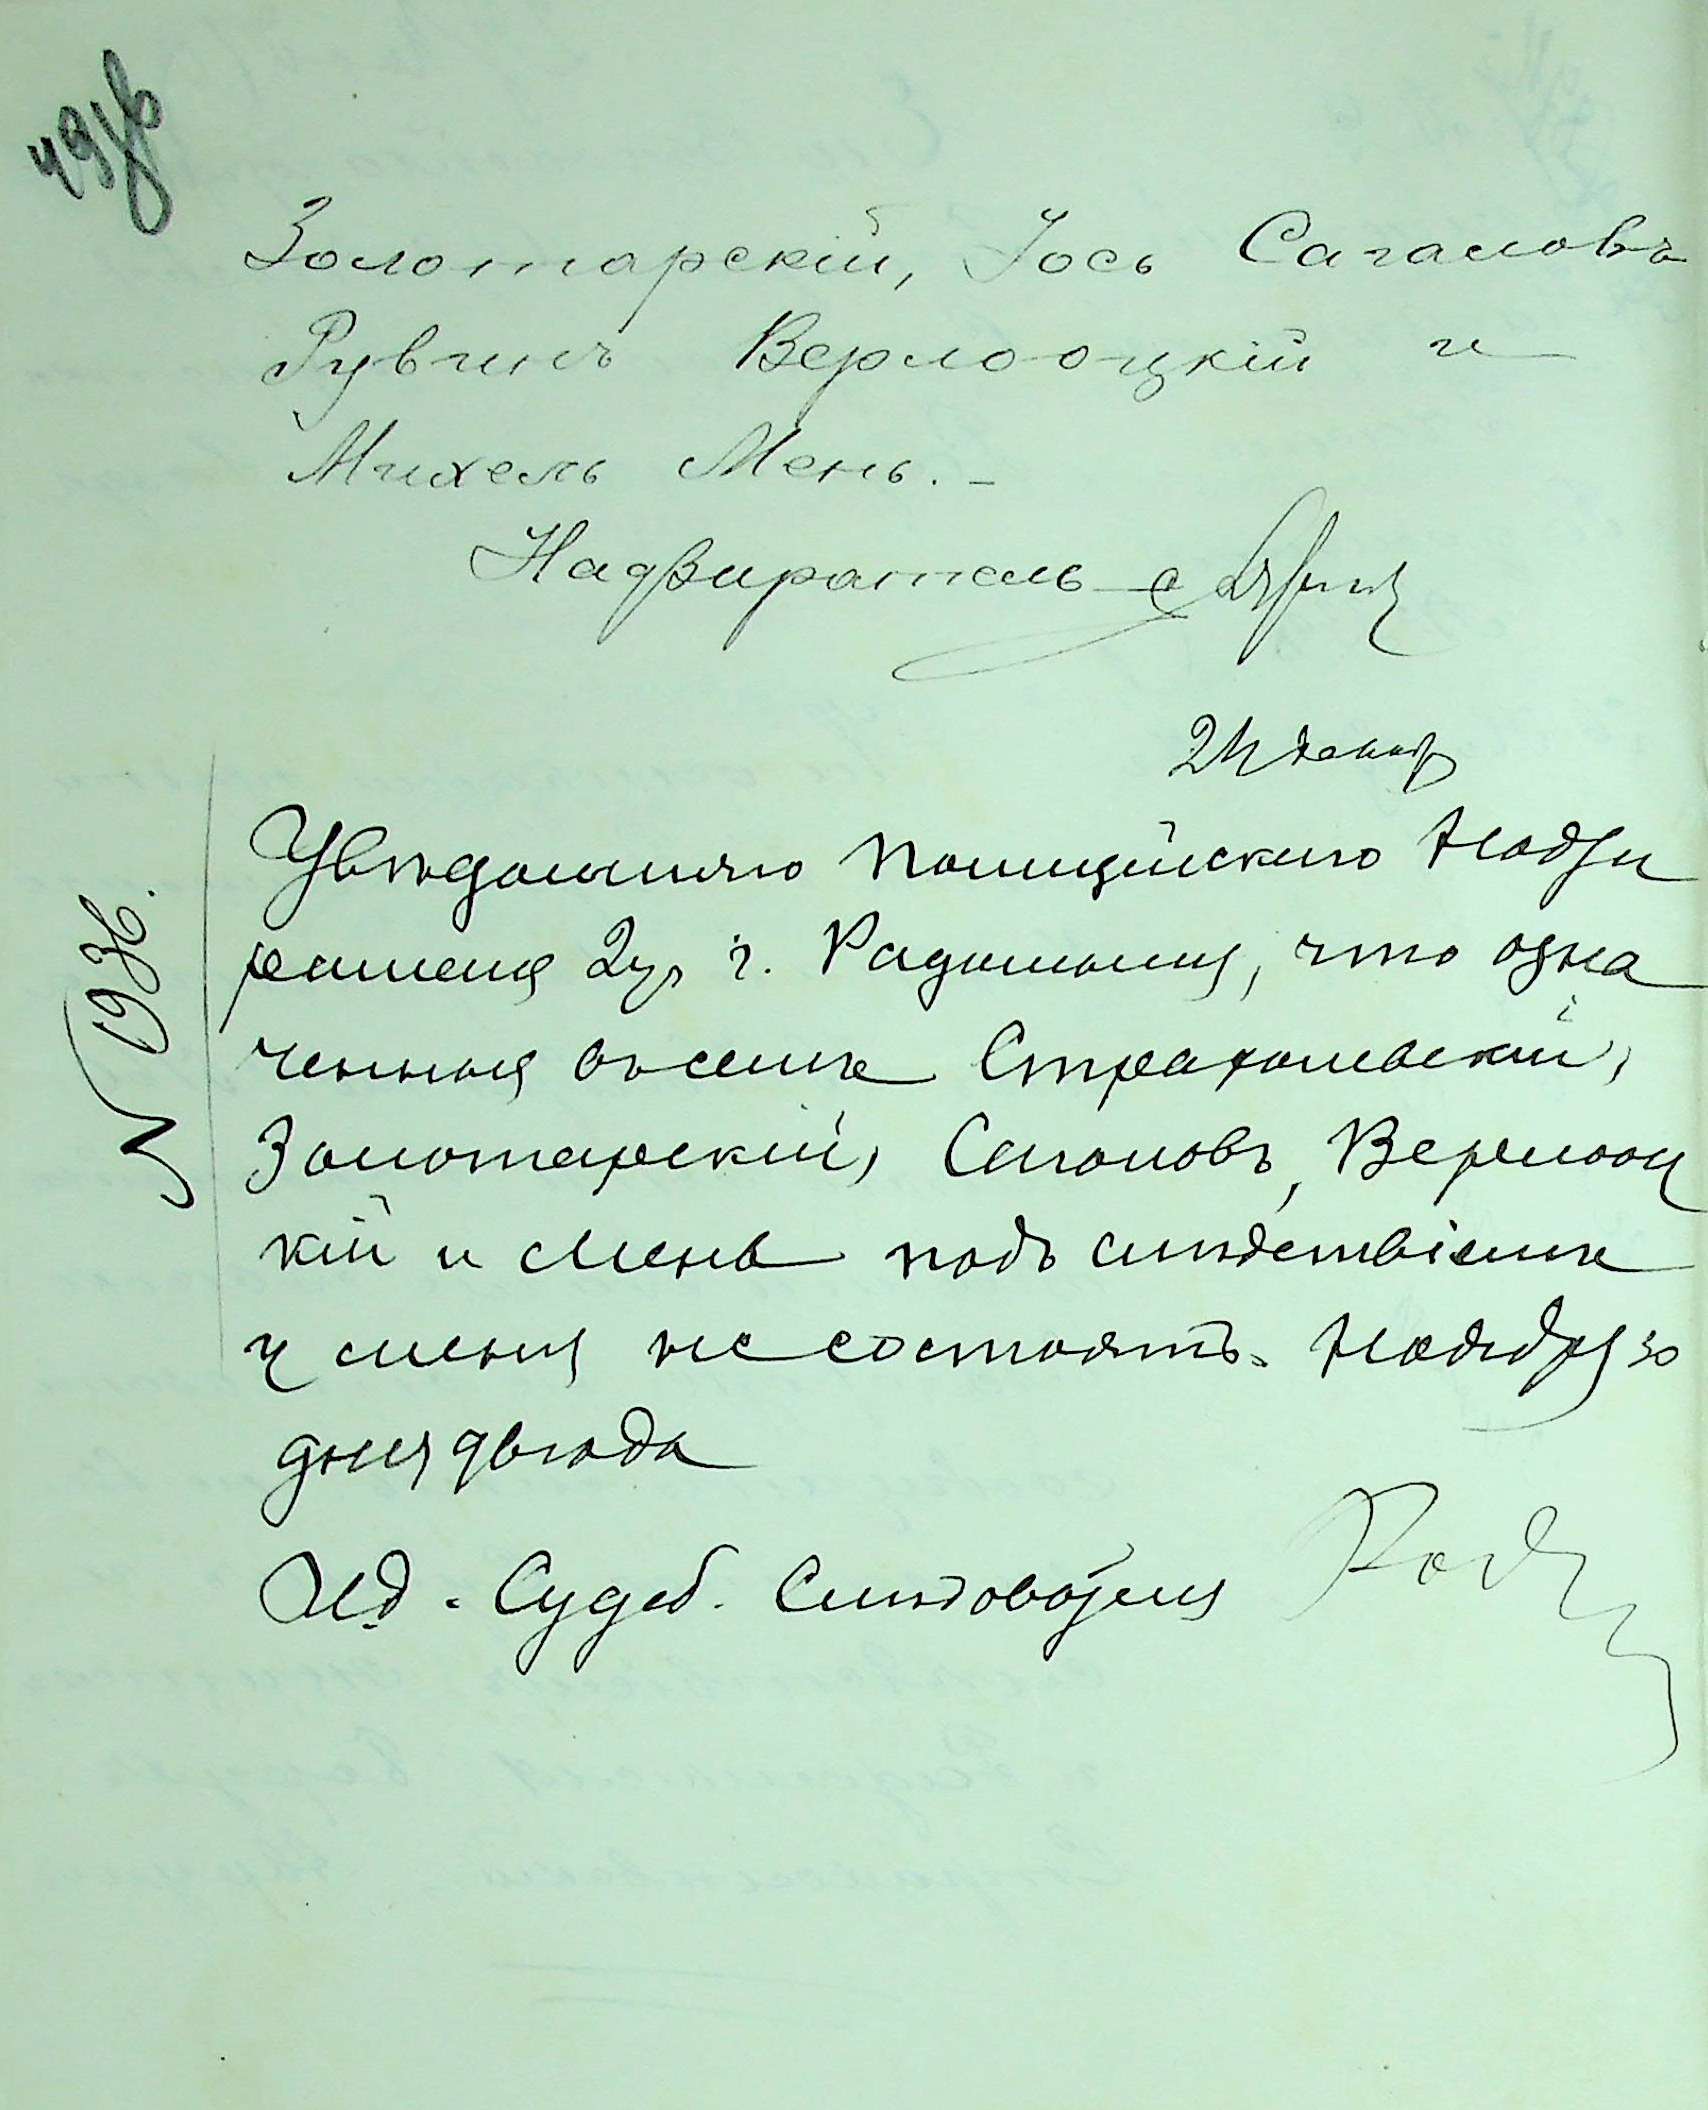 Золотарскій, Іось Сагаловъ
Рувинъ Верлооцкій и
Михель Мень. -
Надзиратель
24 декабр
Увѣдомляю Полицейскаго Надзи
рателя 2 уч. г. Радомысля, что озна
ченные въ семъ Страхолѣскій,
Золотарскій, Сагаловъ, Верлооц
кій и Мень подъ слѣдствіемъ
у меня не состоятъ. Ноября 30
дня года
И.д. Судеб. Слѣдователя
N 1936.